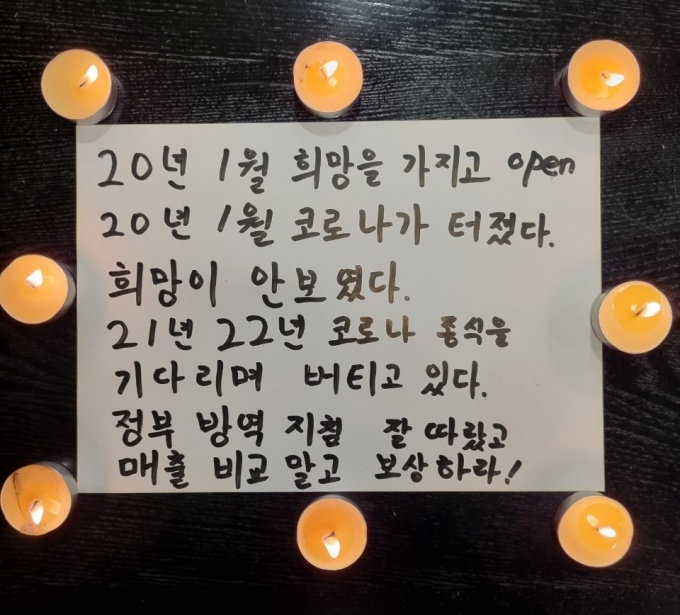 20년 1월 희망을 가지고 open
20년 1월 코로나가 터졌다.
희망이 안보였다.
21년 22년 코로나 종식을
기다리며 버티고 있다.
정부 방역 지침 잘 따랐고
매출 비교 말고 보상하라!